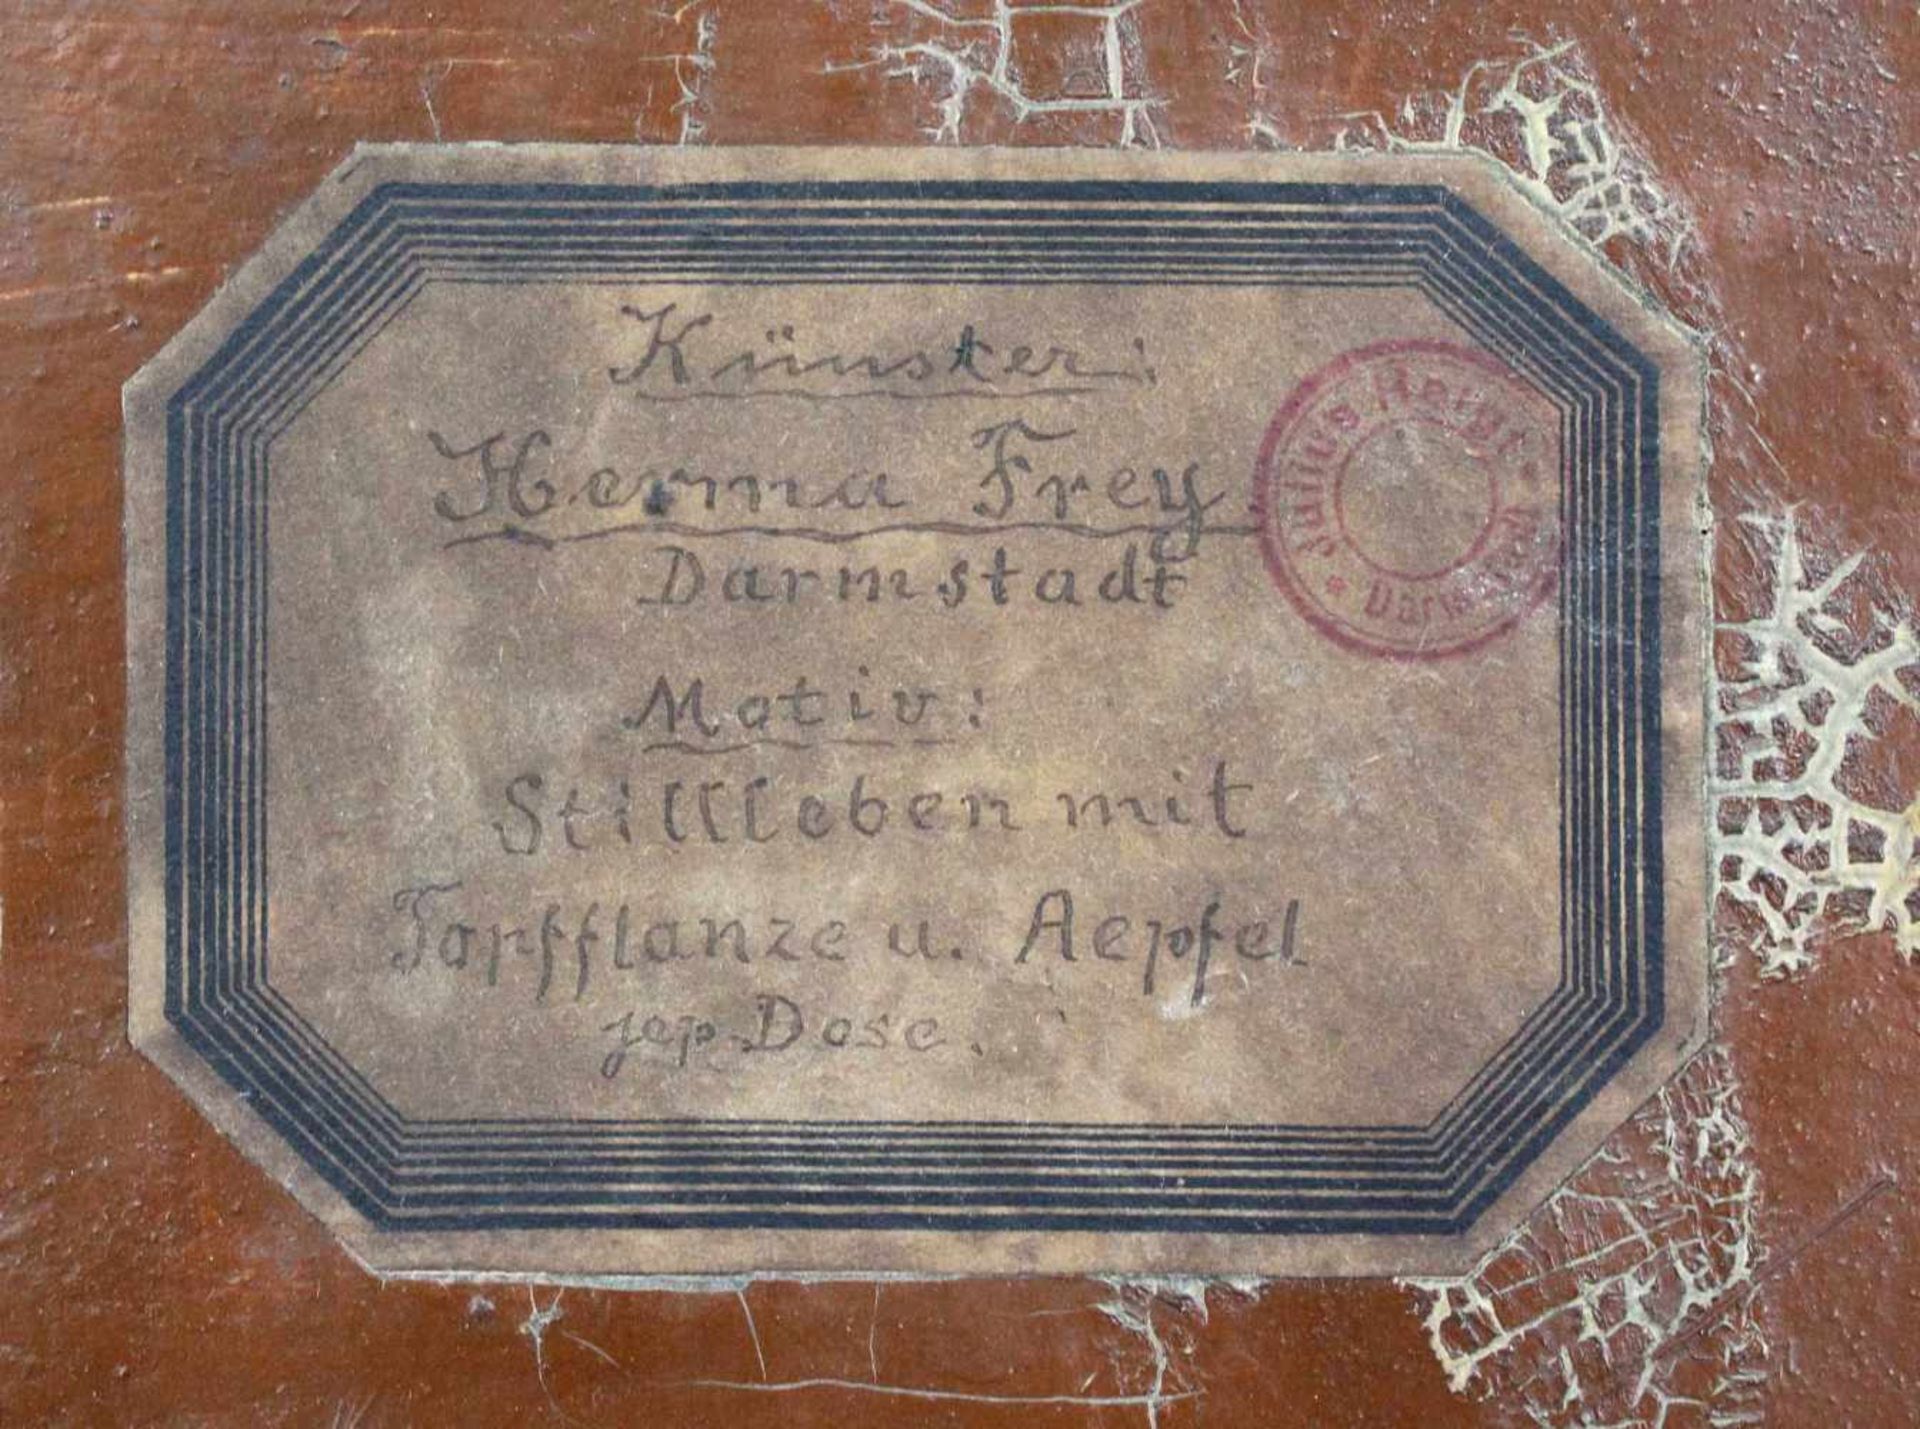 Künster:
Herma Frey
Darmstadt
Motiv:
Stillleben mit
Topfflanze u. Aepfel
jap. Dose.
Julius